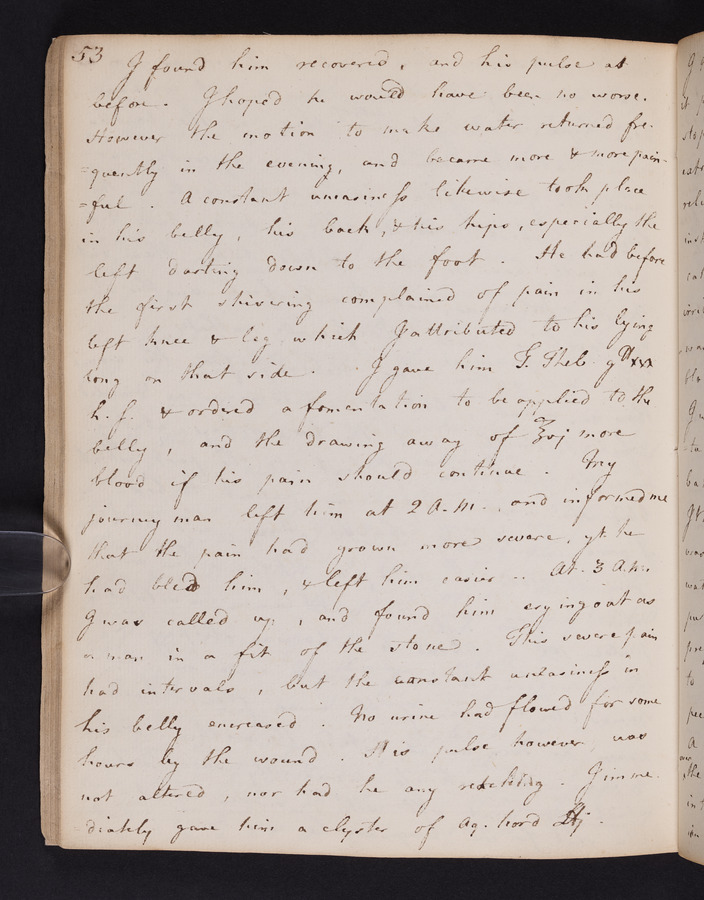 53
I found him recovered, and his pulse as
before. I hoped he would have been no worse.
However the motion to make water returned fre-
=quently in the evening, and became more & more pain-
=ful. A constant uneasiness likewise took place
in his belly, his back, & his hips, especially the
left darting down to the foot. He had before
the first shivering complained of pain in his
left knee & leg, which I attributed to his lying
long on that side. I gave him T. Theb. gtt xxx
h. s. & ordered a fomentation to be applied to the
belly, and the drawing away of ℥vj more
blood if his pain should continue. My
journeyman left him at 2 A.M. and informed me
that the pain had grown more severe, yt he
had bled him, & left him easier.. At 3 A.M.
I was called up, and found him crying out as
a man in a fit of the stone. This severe pain
had intervals, but the constant uneasiness in
his belly encreased. No urine had flowed for some
hours by the wound. His pulse however was
not altered, nor had he any retching. I imme-
diately gave him a clyster of aq. hord